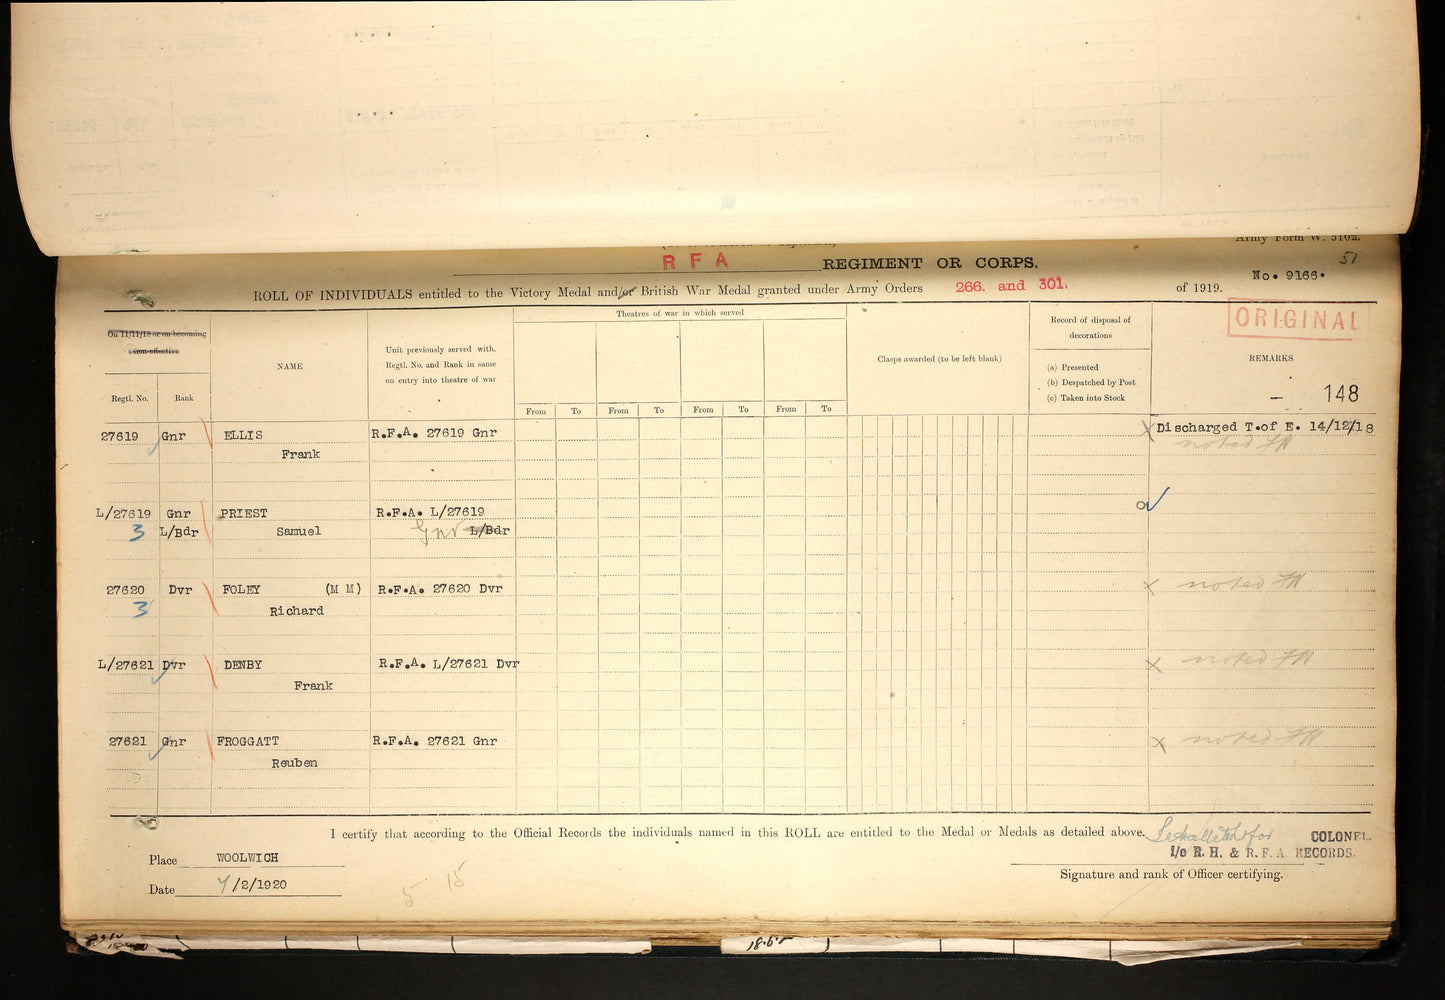 Army Form W. 5102.
51
R F A REGIMENT OR CORPS.
No. 9166.
ROLL OF INDIVIDUALS entitled to the Victory Medal and/or British War Medal granted under Army Orders 266. and 301. of 1919.
ORIGINAL
On 11/11/18 or on becoming
non-effective
Regtl. No.
Rank
NAME
Unit previously served with.
Regtl. No. and Rank in same
on entry into theatre of war
Theatres of war in which served
From To From To From To From To
Clasps awarded (to be left blank)
Record of disposal of
decorations
(a) Presented
(b) Despatched by Post
(c) Taken into Stock
REMARKS
148
27619 Gnr ELLIS R.F.A. 27619 Gnr X Discharged T.of E. 14/12/18
Frank noted
L/27619 Gnr PRIEST R.F.A. L/27619 a
3 L/Bdr Samuel Gnr L/Bdr
27620 Dvr FOLEY (M M) R.F.A. 27620 Dvr X noted
3 Richard
L/27621 Dvr DENBY R.F.A. L/27621 Dvr X noted
Frank
27621 Gnr FROGGATT R.F.A. 27621 Gnr X noted
Reuben
I certify that according to the Official Records the individuals named in this ROLL are entitled to the Medal or Medals as detailed above.
for COLONEL.
i/c R. H. & R. F. A RECORDS.
Place WOOLWICH
Signature and rank of Officer certifying.
Date 7/2/1920
5 15